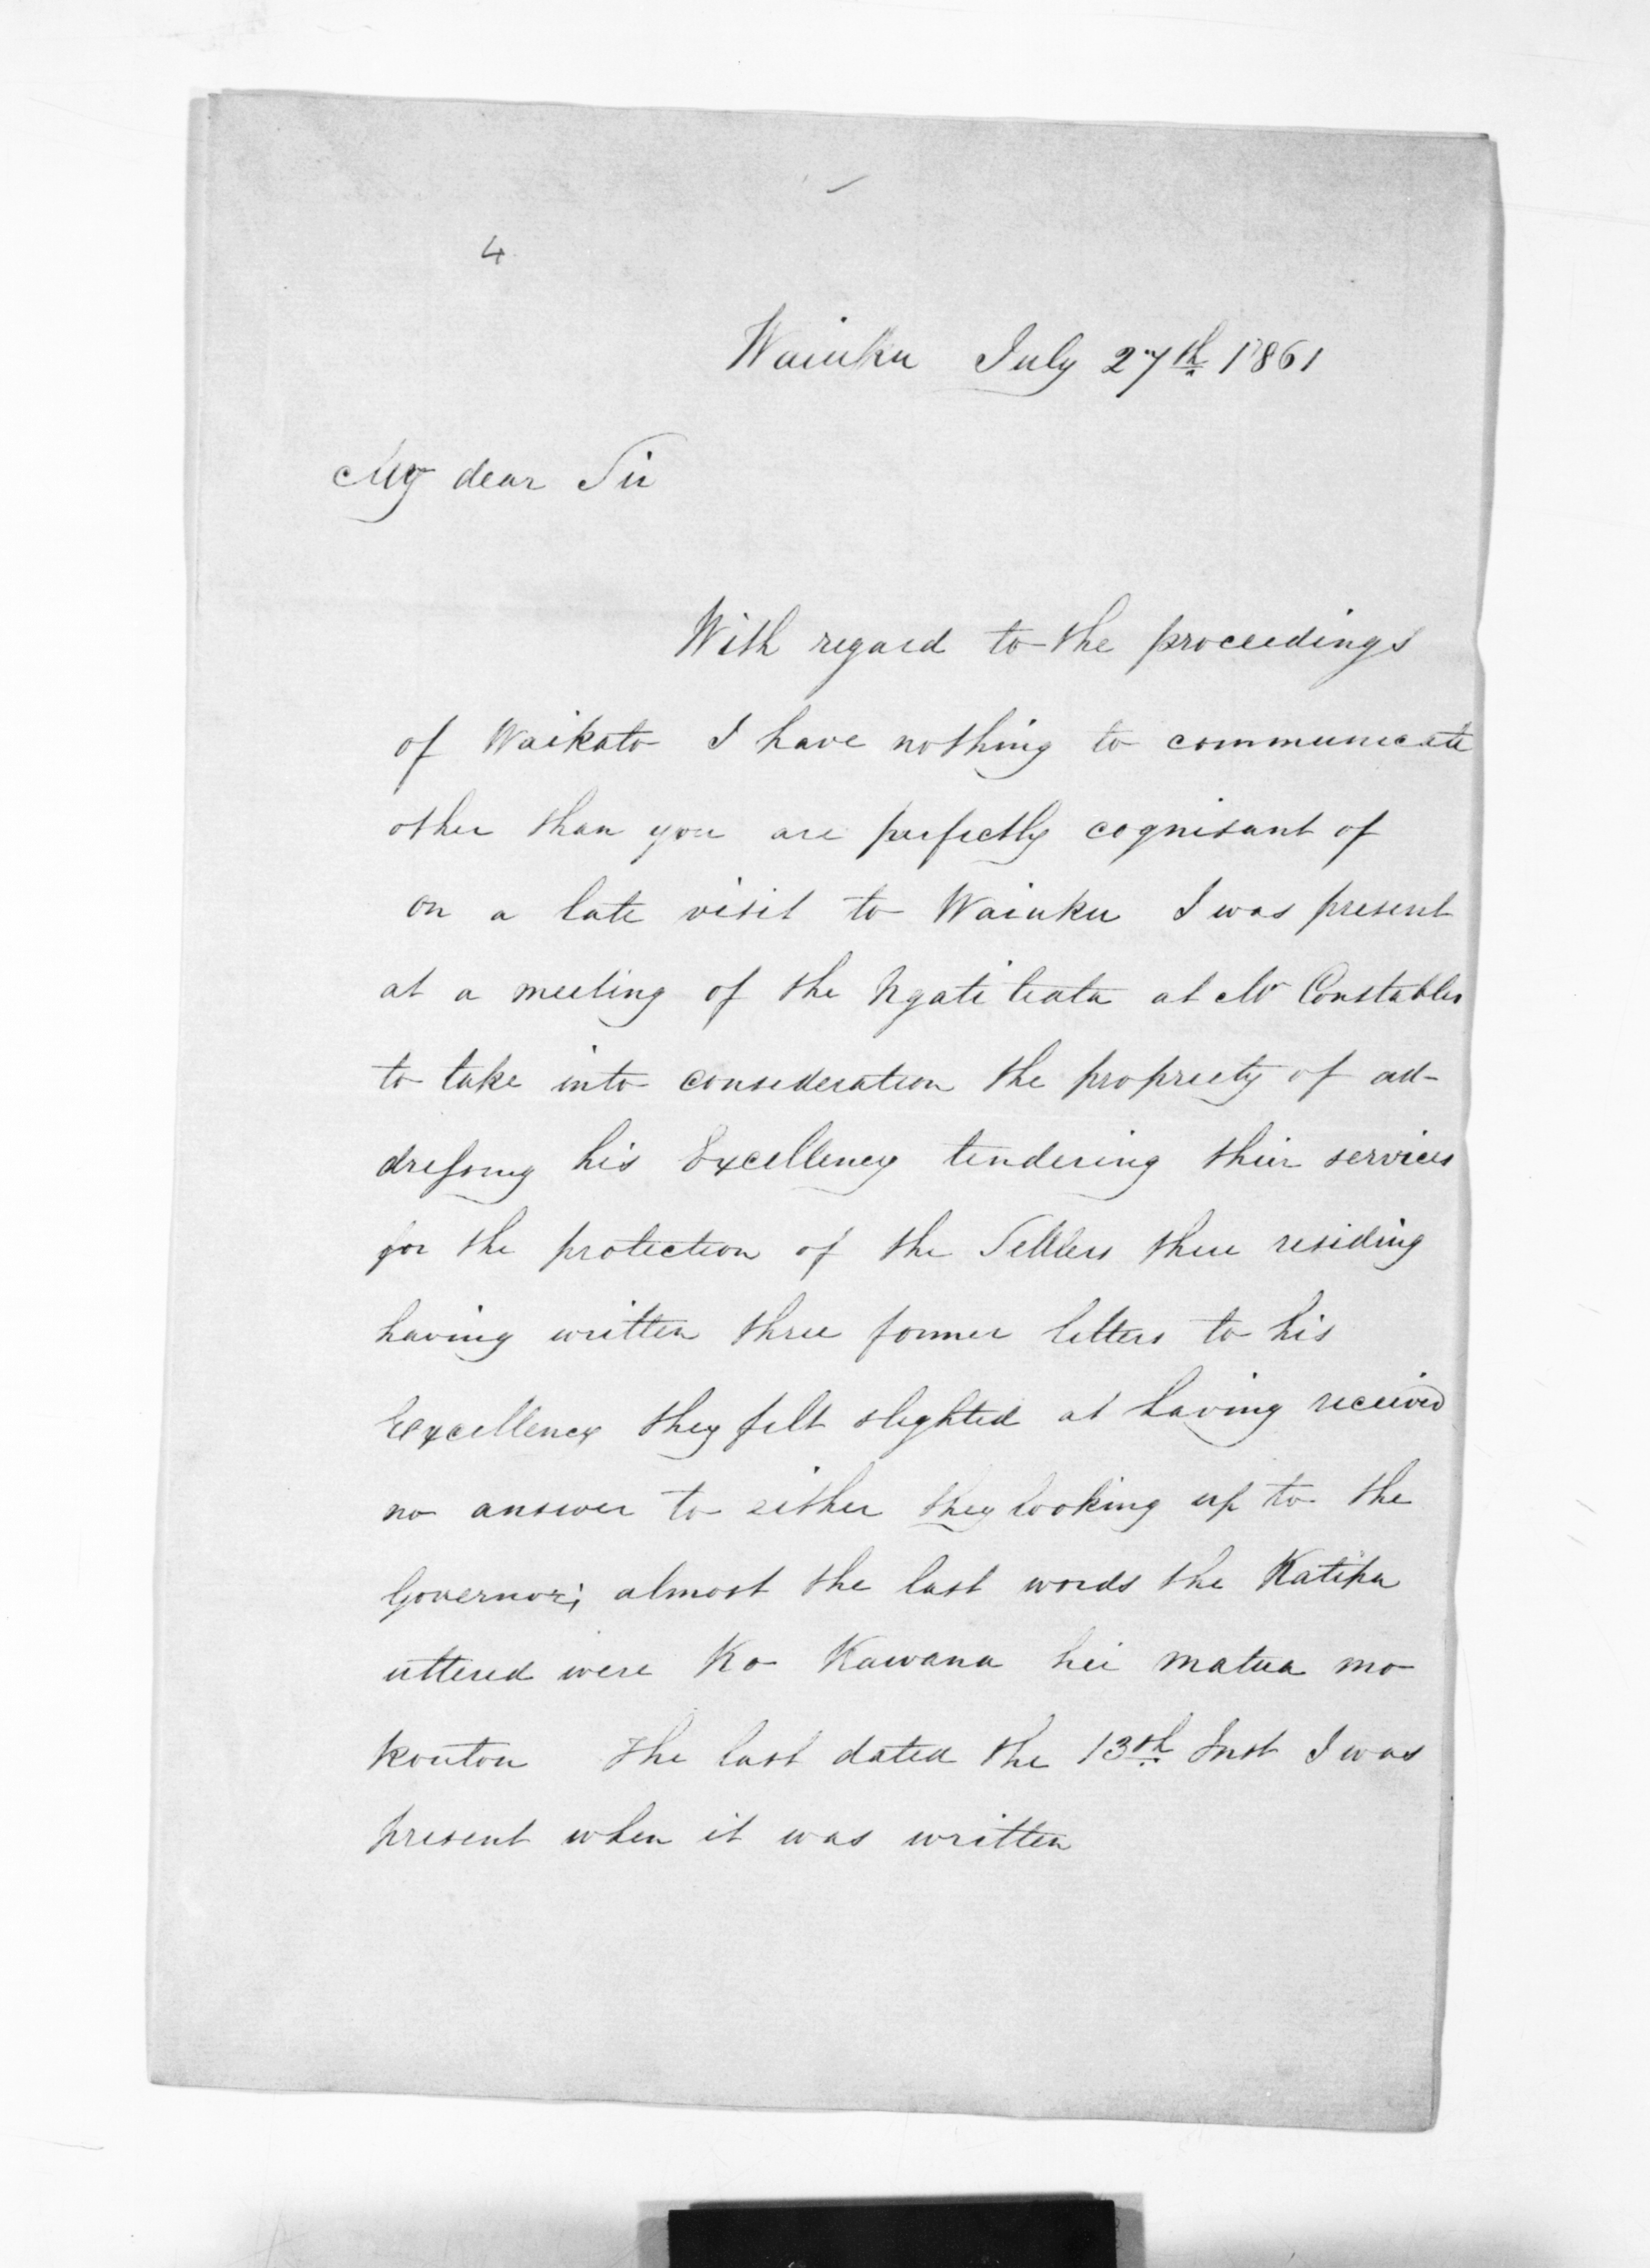 4
Waiuku July 27th 1861
My dear Sir
With regard to the proceedings
of Waikato I have nothing to communicate
other than you are perfectly cognisant of
on a late visit to Waiuku I was present
at a meeting of the Ngati teata at Mr Constables
to take into consideration the propriety of ad-
dressing his Excellency tendering their services
for the protection of the Settlers there residing
having written three former letters to his
Excellency they felt slighted at having received
no answer to either they looking up to the
Governor; almost the last words the Katipa
uttered were Ko Kawana hei matua mo
koutou The last dated the 13th Inst I was
present when it was written